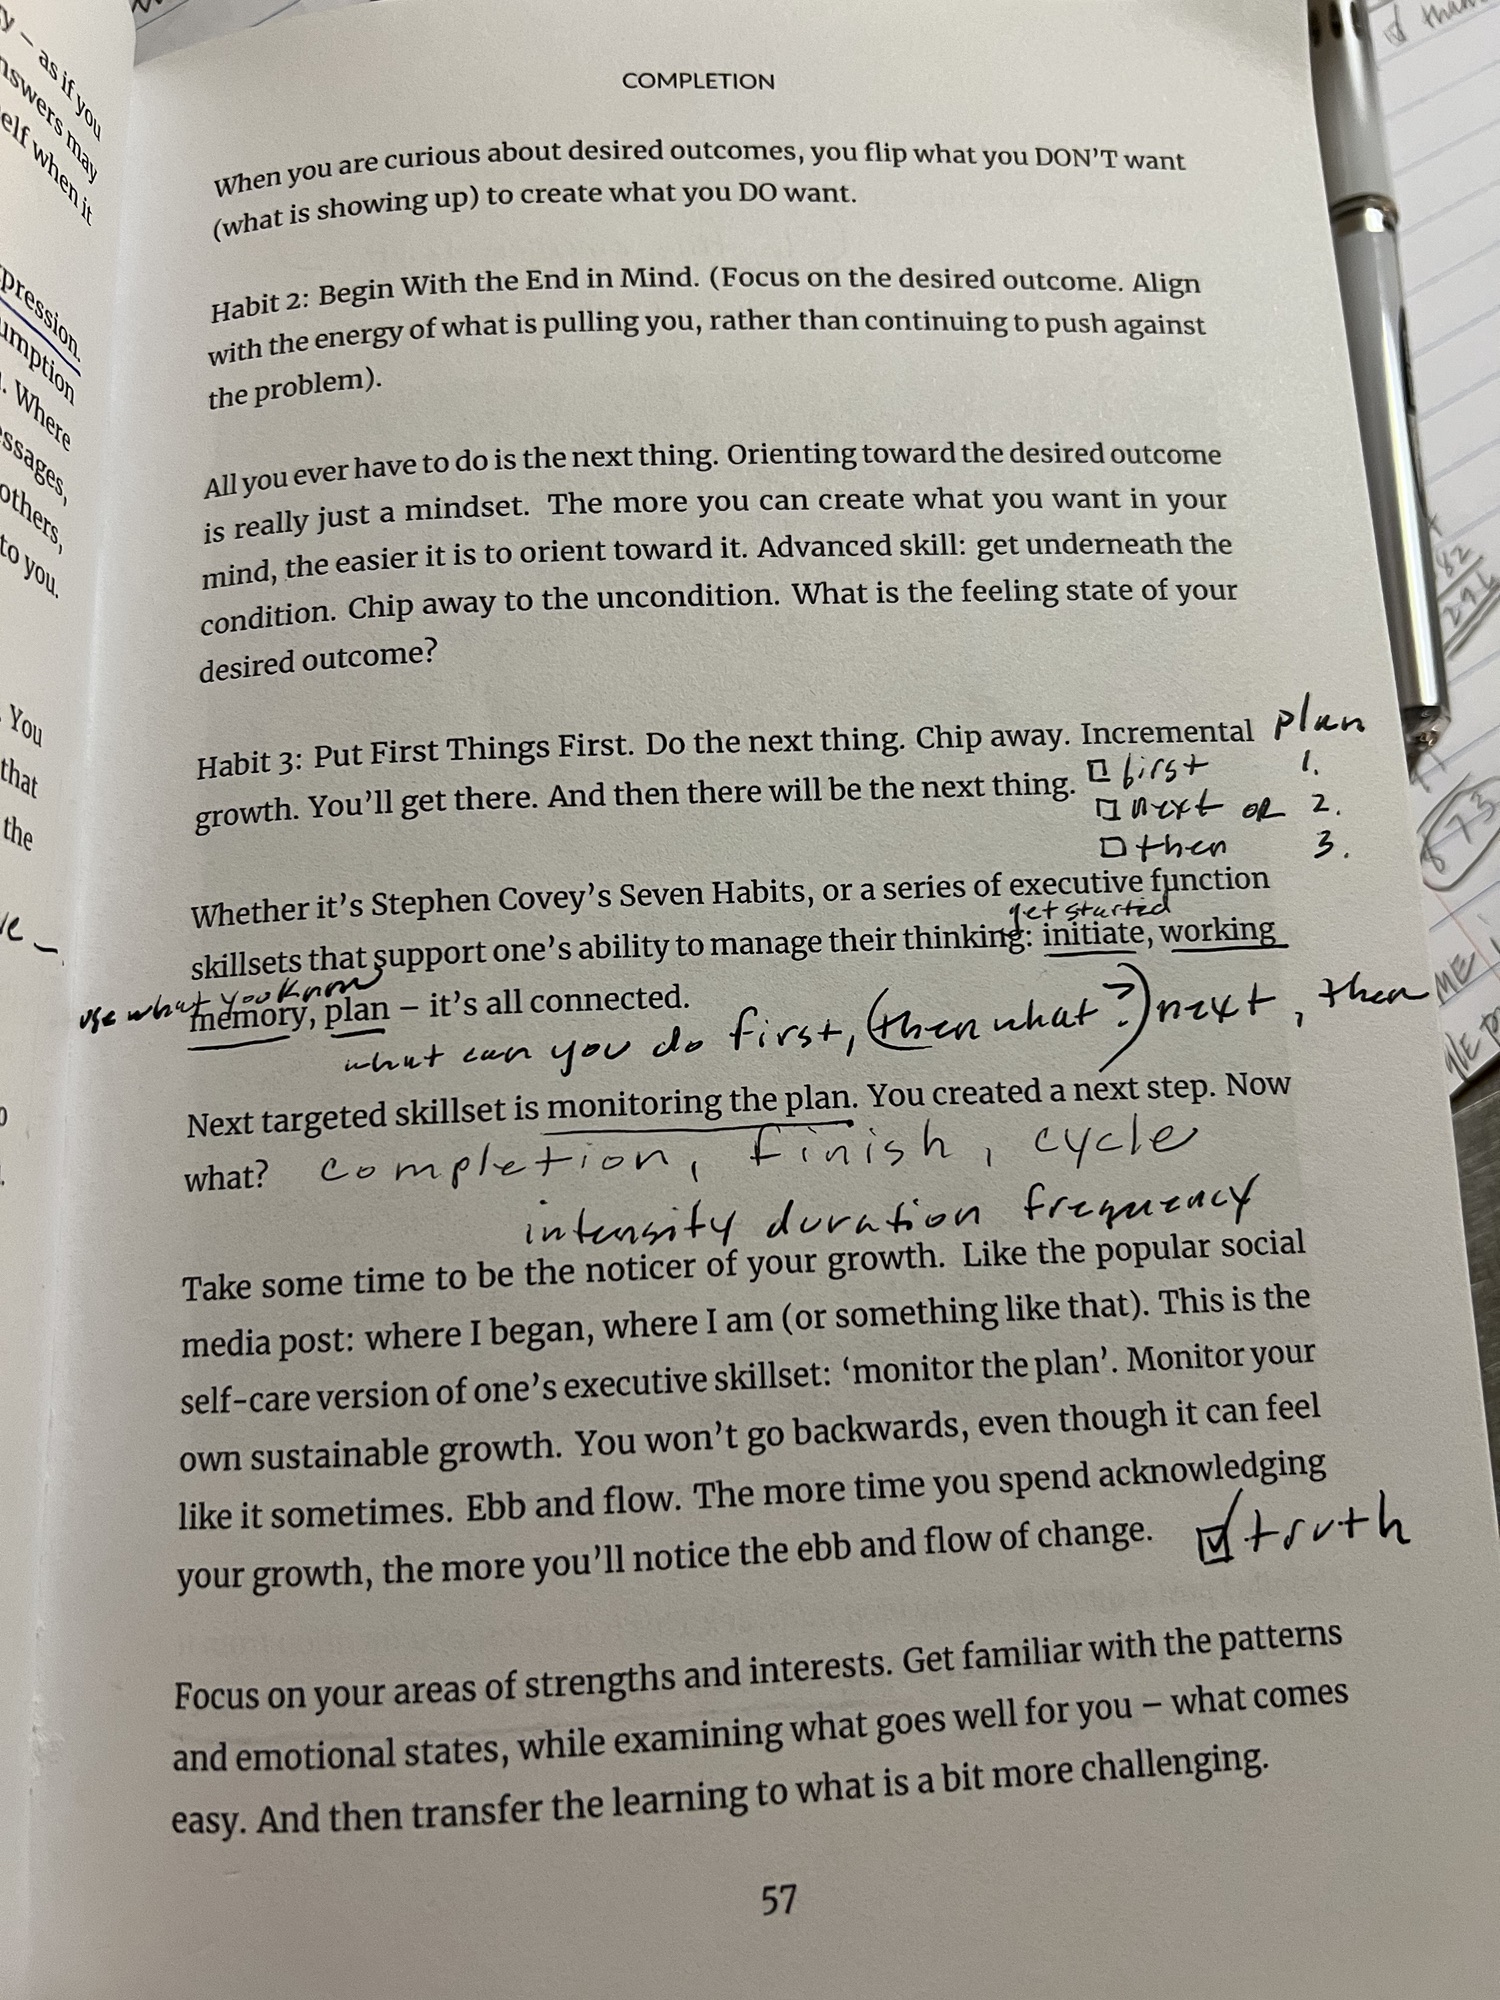 y – as if you
nswers may
elf when it
pression.
umption
. Where
essages,
others,
to you.
. You
that
the
COMPLETION
When you are curious about desired outcomes, you flip what you DON'T want
(what is showing up) to create what you DO want.
Habit 2: Begin With the End in Mind. (Focus on the desired outcome. Align
with the energy of what is pulling you, rather than continuing to push against
the problem).
All you ever have to do is the next thing. Orienting toward the desired outcome
is really just a mindset. The more you can create what you want in your
mind, the easier it is to orient toward it. Advanced skill: get underneath the
condition. Chip away to the uncondition. What is the feeling state of your
desired outcome?
Habit 3: Put First Things First. Do the next thing. Chip away. Incremental plan
growth. You'll get there. And then there will be the next thing. □ first 1.
□ next OR 2.
□ then 3.
Whether it's Stephen Covey's Seven Habits, or a series of executive function
get started
skillsets that support one's ability to manage their thinking: initiate, working
use what you know
memory, plan – it's all connected.
what can you do first, (then what?) next, then
Next targeted skillset is monitoring the plan. You created a next step. Now
what? completion, finish, cycle
intensity duration frequency
Take some time to be the noticer of your growth. Like the popular social
media post: where I began, where I am (or something like that). This is the
self-care version of one's executive skillset: 'monitor the plan'. Monitor your
own sustainable growth. You won't go backwards, even though it can feel
like it sometimes. Ebb and flow. The more time you spend acknowledging
your growth, the more you'll notice the ebb and flow of change. ☑ truth
Focus on your areas of strengths and interests. Get familiar with the patterns
and emotional states, while examining what goes well for you – what comes
easy. And then transfer the learning to what is a bit more challenging.
57
82
873
ME